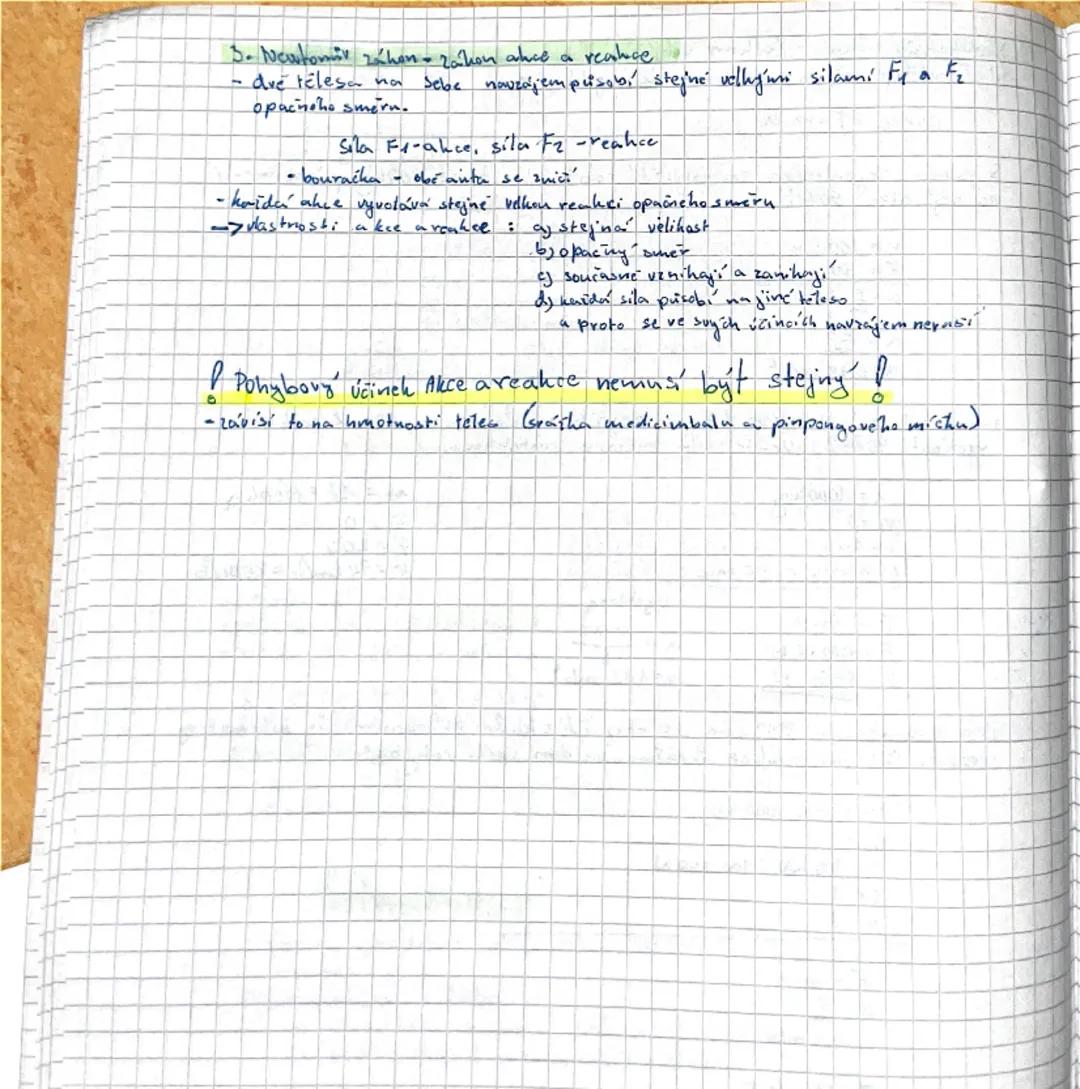 3. Newtonův zákon - zákon akce a reakce
- dvě tělesa na sebe navzájem působí stejně velkými silami F1 a F2
opačného směru.
Síla F1-akce, síla F2 -reakce
• bouračka - obě auta se zničí
- každá akce vyvolává stejně velkou reakci opačného směru
→ vlastnosti akce a reakce : a) stejná velikost
b) opačný směr
c) současně vznikají a zanikají
d) každá síla působí na jiné těleso
a proto se ve svých účincích navzájem neruší
! Pohybový účinek Akce a reakce nemusí být stejný !
- závisí to na hmotnosti těles (srážka medicimbalu a pinpongového míčku)